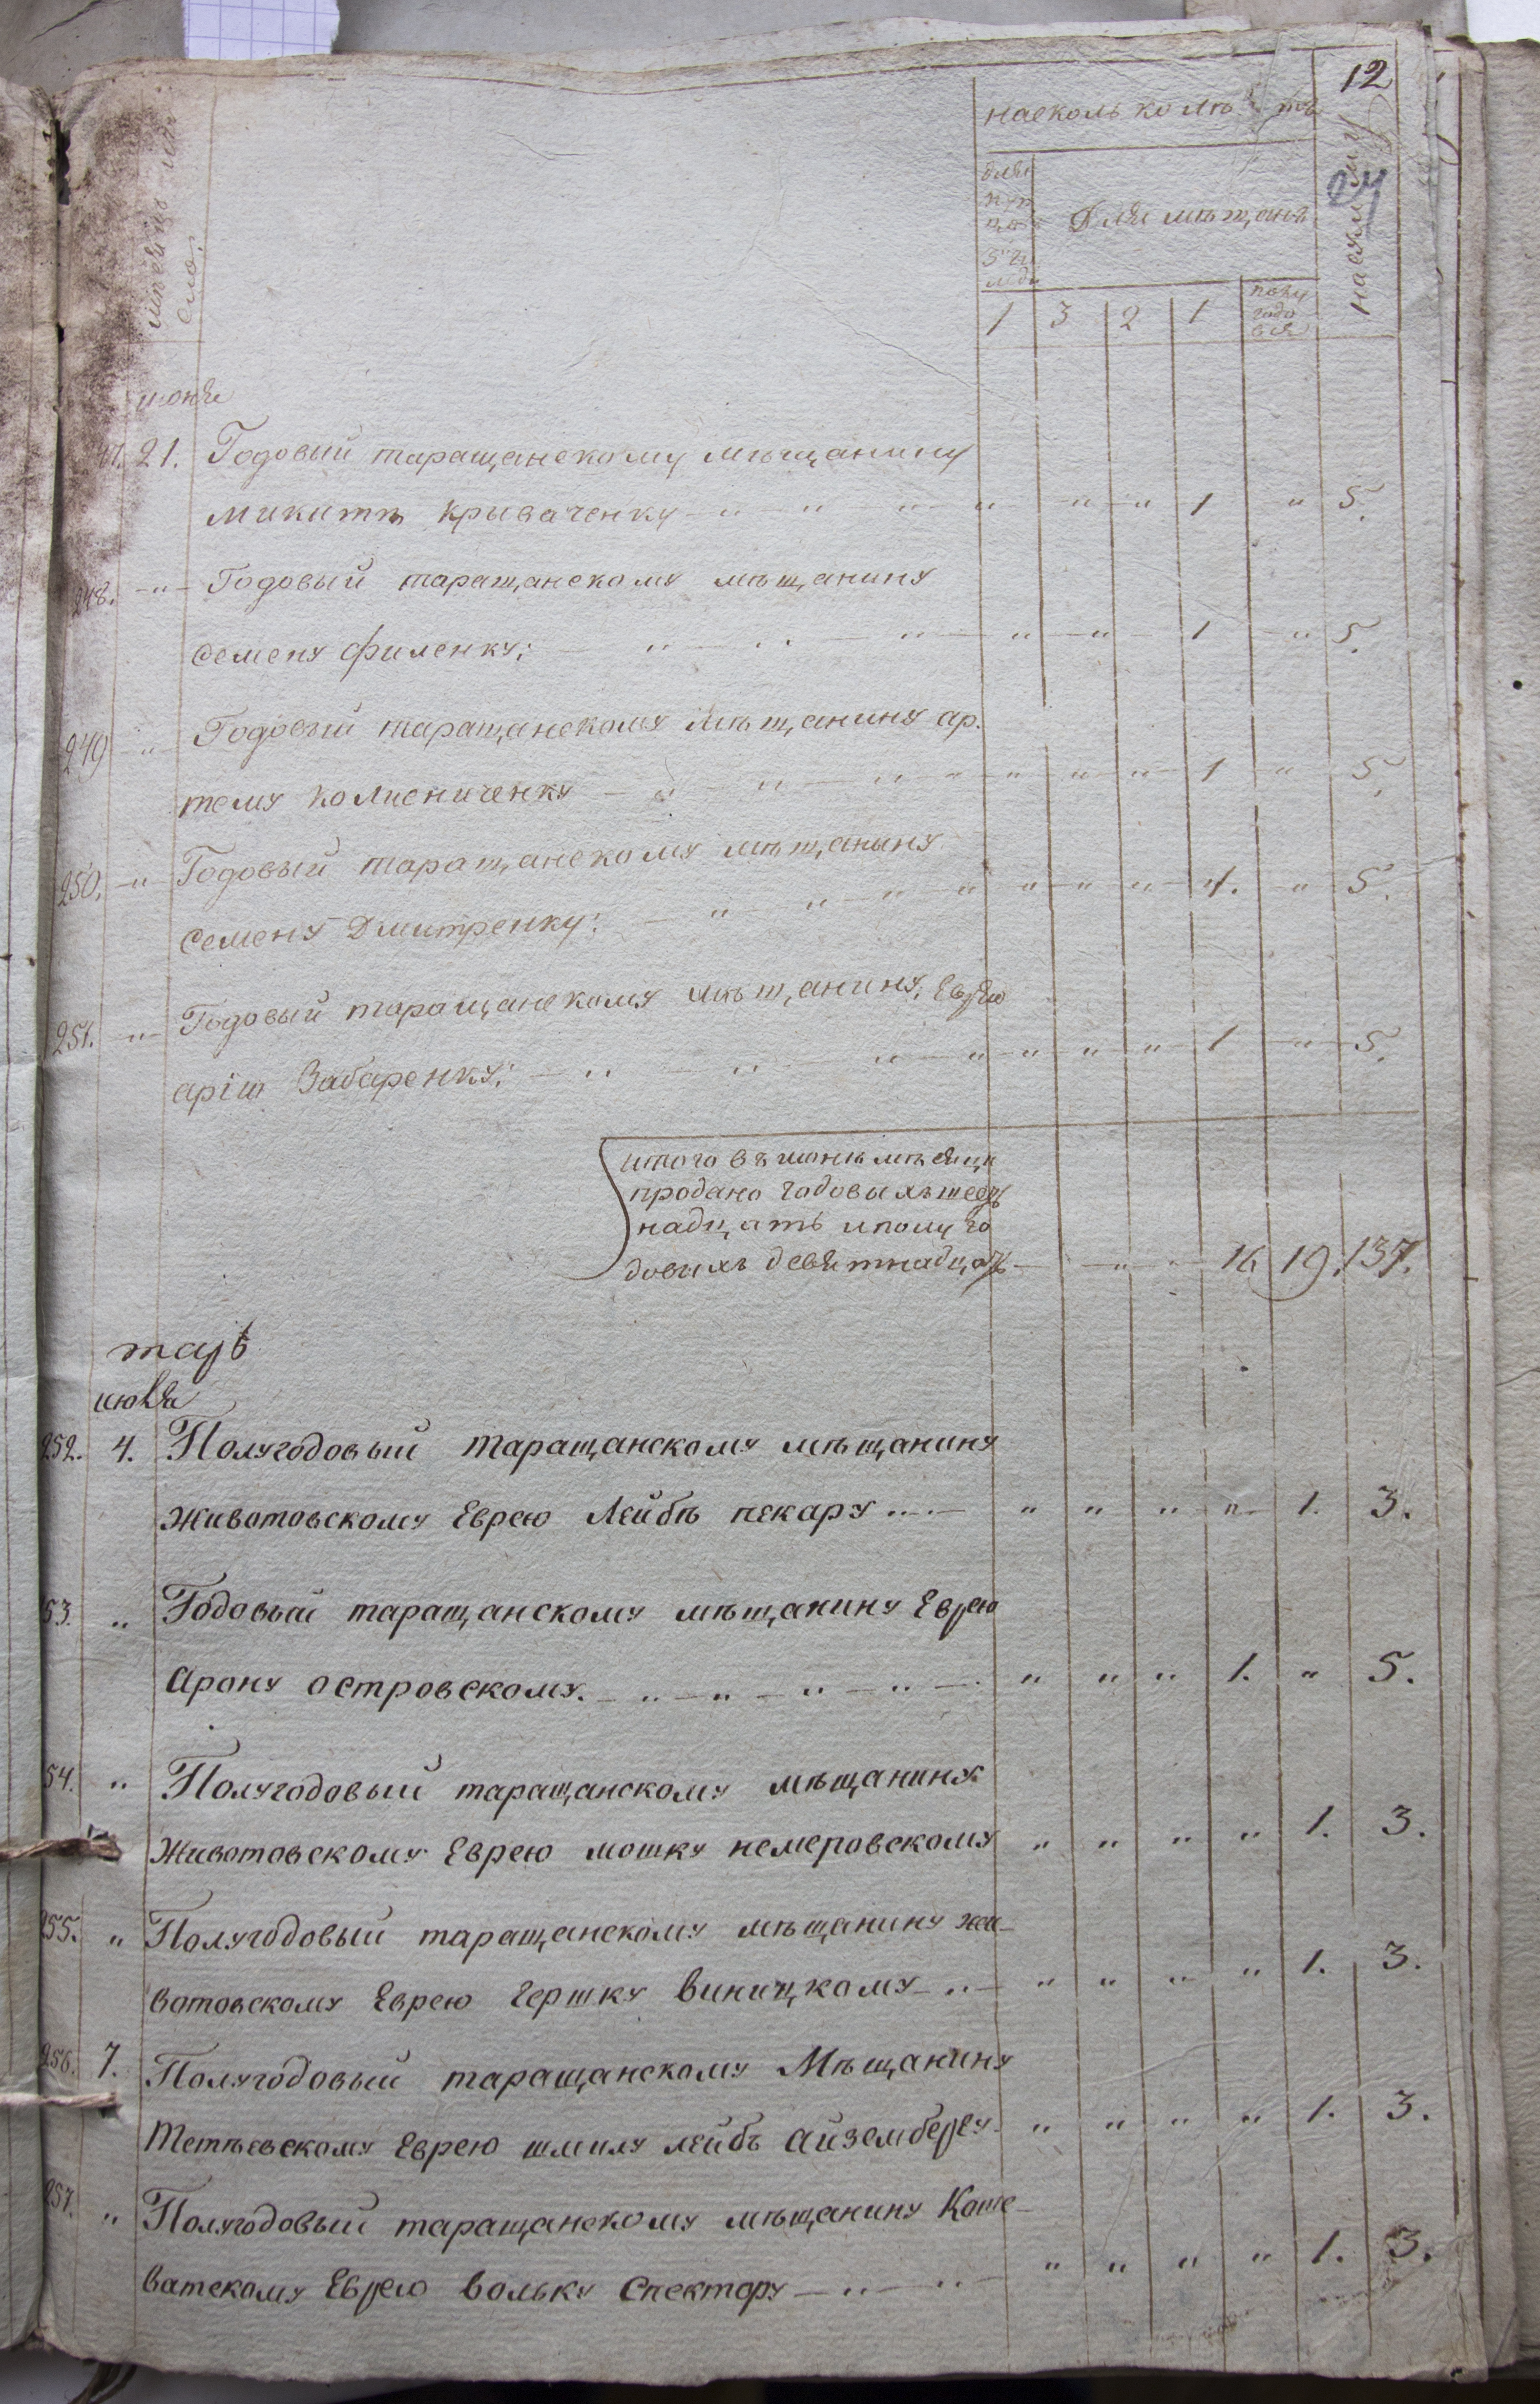 12
на сколько лѣтъ
24
мѣсяцъ и чи
сло.
для
куп
цовъ
Для мѣщанъ
на сумму
1 3 2 1 полу
годо
вой
июня
21. Годовый таращанскому мѣщанину
Микитѣ Криваченку — " — " — " — " — " — " 1 " 5.
248. — " — Годовый таращанскому мѣщанину
Семену Филенку; — " — " — " — " — " — 1 — " 5.
249 — " — Годовый таращанскому мѣщанину ар.
тему Колисниченку — " — " — " — " — " — " — " — 1 — " 5.
250. — " — Годовый таращанскому мѣщанину
Семену Дмитренку: — " — " — " — " — " — " — " — 1. — " 5.
251. — " — Годовый таращанскому мѣщанину, Евреи
Забаренку; — " — " — " — " — " — " — " — 1 — " 5.
итого въ июнѣ мѣсяцѣ
продано годовыхъ шест
надцать и полуго
довихъ девятнадцать — " — " 16 19. 137.
июля
252. 4. Полугодовый таращанскому мѣщанину
Животовскому Еврею Лейбѣ пекару " — " " " " 1. 3.
53. " Годовый таращанскому мѣщанину Еврею
Арону островскому. — " — " — " — " — " " " 1. " 5.
54. " Полугодовый таращанскому мѣщанину
Животовскому Еврею мошку немеровскому " " " " 1. 3.
255. " Полугодовый таращанскому мѣщанину жи-
вотовскому Еврею Гершку Виницкому — " — " " " " 1. 3.
256. 7. Полугодовый таращанскому Мѣщанину
Тетѣевскому Еврею шмилу лейбѣ айзембергу " " " " 1. 3.
257. " Полугодовый таращанскому мѣщанину Коше-
ватскому Еврею вольку Спектору — " — " — " " " " 1. 3.